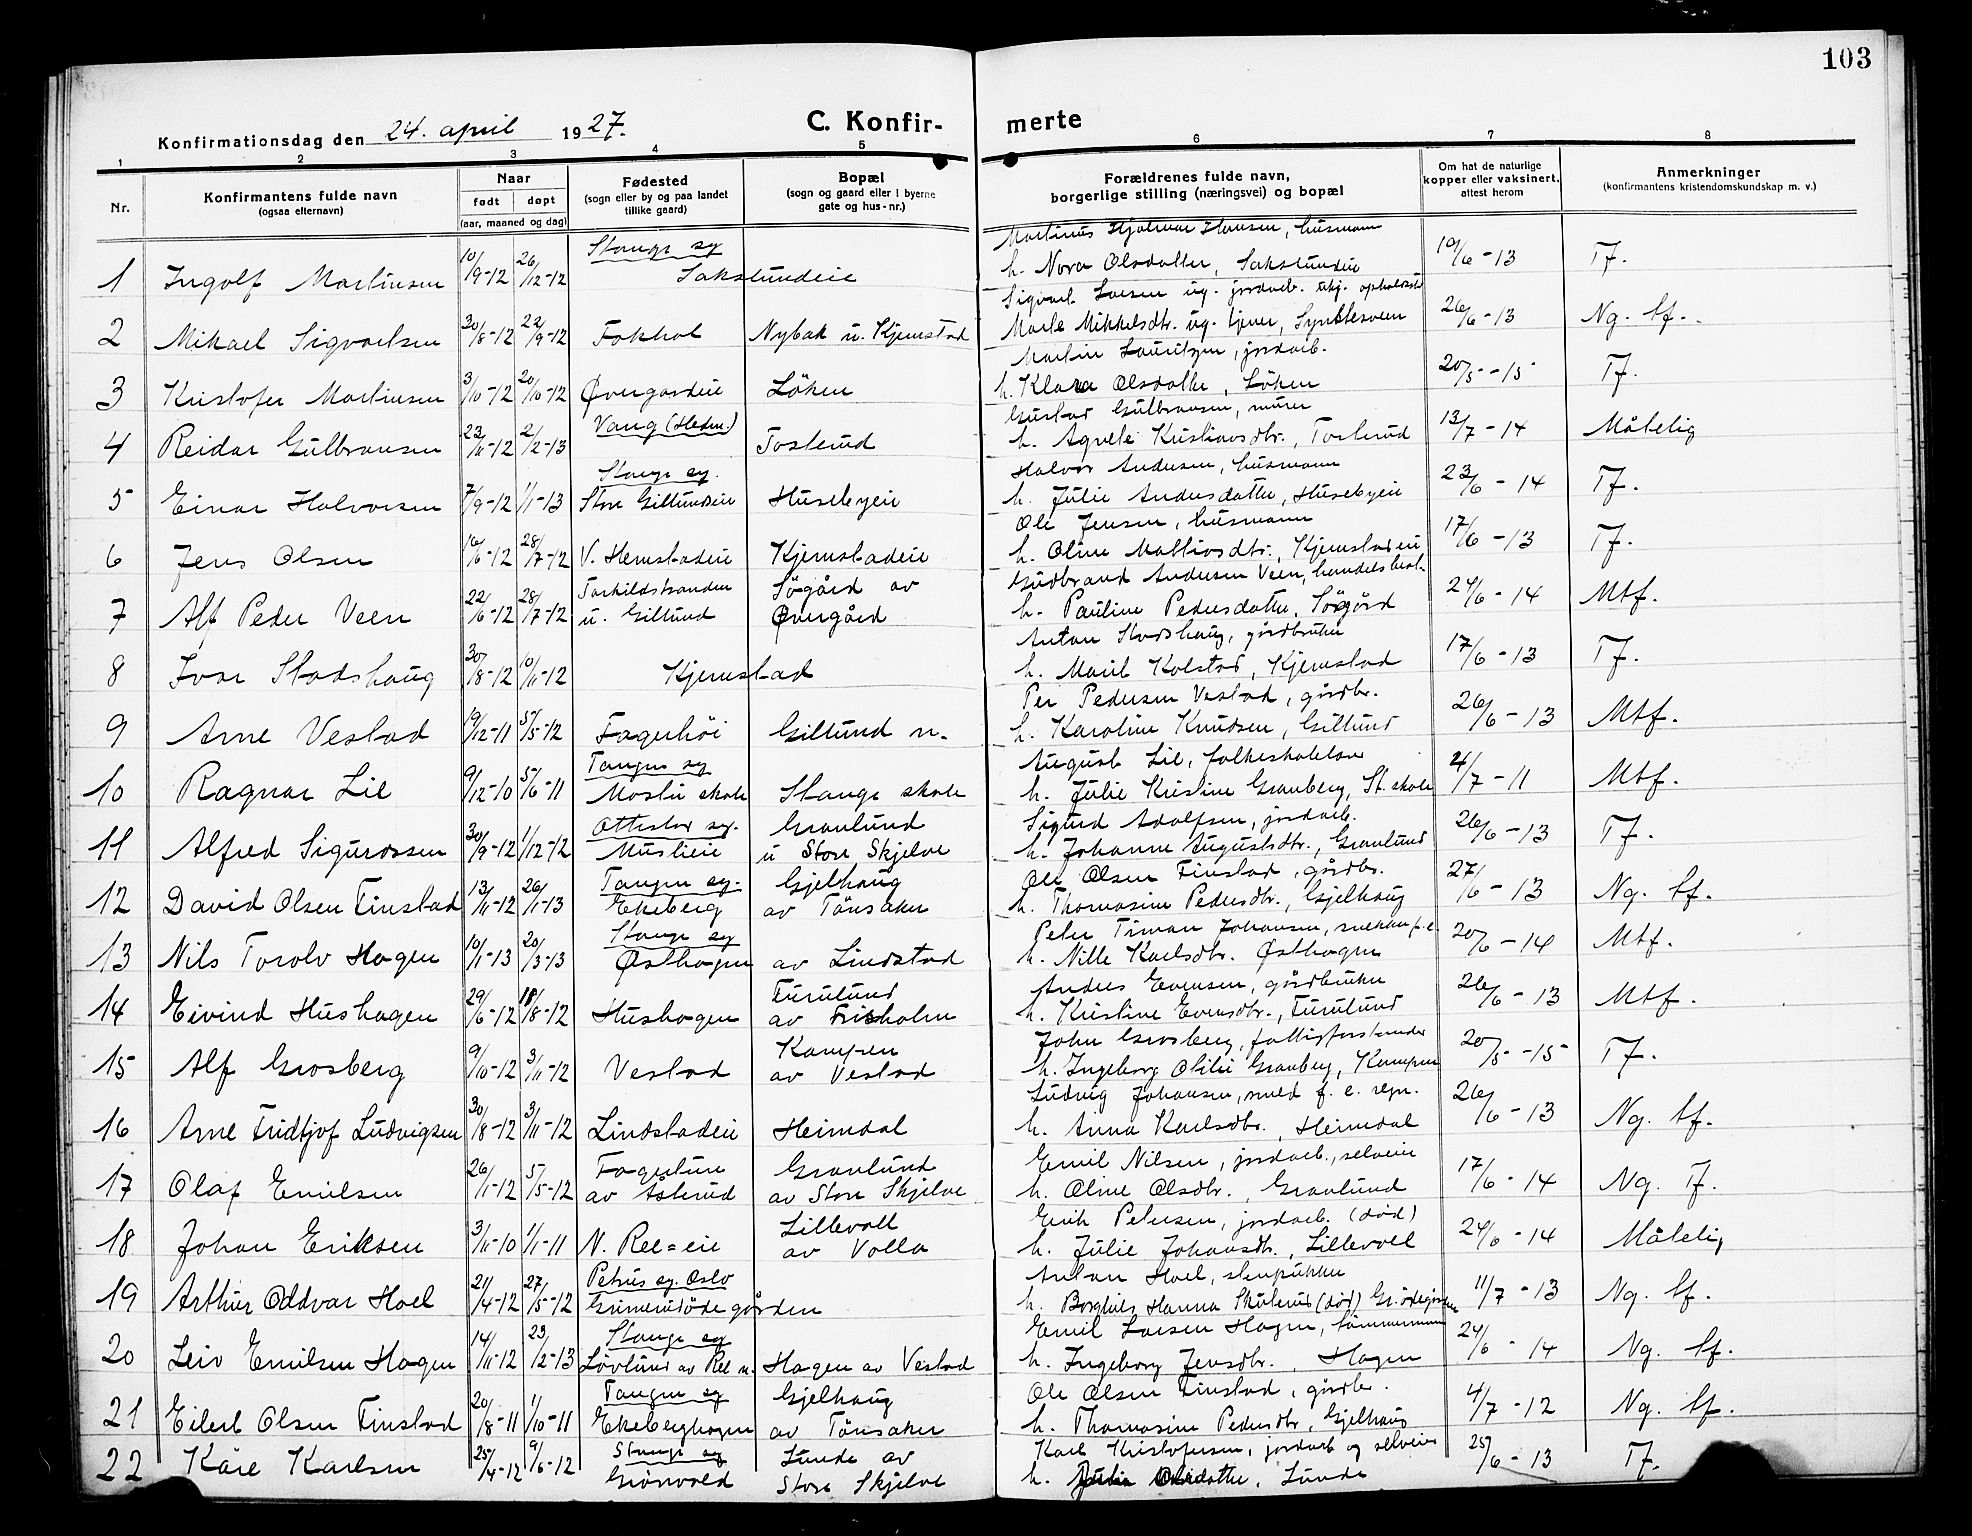 103
C. Konfir- merte
Konfirmationsdag den 24. april 1927.
1 2 3 4 5 6 7 8
Nr.
Konfirmantens fulde navn
(ogsaa efternavn)
Naar
født døpt
(aar, maaned og dag)
Fødested
(sogn eller by og paa landet
tillike gaard)
Bopæl
(sogn og gaard eller i byerne
gate og hus-nr.)
Forældrenes fulde navn,
borgerlige stilling (næringsvei) og bopæl
Om hat de naturlige
kopper eller vaksinert,
attest herom
Anmerkninger
(konfirmantens kristendomskundskap m. v.)
Stange sg Martinus Hjalmar Hansen, husmann
1 Ingolf Martinsen 10/9-12 26/12-12 Sakslundeie h. Nora Olsdatter, Sakslundeie 19/6-13 Tf.
Sigvart Larsen ug. jordarb.
2 Mikael Sigvartsen 30/8-12 22/9-12 Fokhol Nybak u. Kjemstad Marte Mikkelsdtr. ug. tjener, 26/6-13 Ng. tf.
Martin Lauritzen, jordarb.
3 Kristofer Martinsen 3/10-12 20/10-12 Øvergardeie Löken h. Klara Olsdatter, Löken 20/5-15 Tf.
Vang (Hedm.) Gustav Gulbransen, murer
4 Reidar Gulbransen 23/11-12 2/2-13 Tosterud h. Agnete Kristiansdtr., Tosterud 13/7-14 Måtelig
Stange sg. Halvor Andersen, husmann
5 Einar Halvorsen 7/9-12 1/1-13 Store Gillundseie Husebyeie h. Julie Andersdatter, Husebyeie 23/6-14 Tf.
Ole Jensen, husmann
6 Jens Olsen 16/6-12 28/7-12 V. Hemstadeie Kjemstadeie h. Oline Mathisdtr., Kjemstadeie 17/6-13 Tf.
Torkildstranden Sögård av Gudbrand Andersen Veen, handelsbest.
7 Alf Peder Veen 22/6-12 28/7-12 u. Gillund Övergård h. Pauline Pedersdatter, Sögård 24/6-14 Mtf.
Anton Stadshaug, gårdbruker
8 Ivar Stadshaug 30/8-12 10/11-12 Kjemstad h. Marit Kolstad, Kjemstad 17/6-13 Tf.
Per Pedersen Vestad, gårdbr.
9 Arne Vestad 19/12-11 5/5-12 Fagerhöi Gillund n. h. Karoline Knudsen, Gillund 26/6-13 Mtf.
Tangen sg August Lie, folkeskolelær
10 Ragnar Lie 9/12-10 5/6-11 Mostu skole Stange skole h. Julie Kristine Granberg, St. skole 4/7-11 Mtf.
Ottestad sg. Granlund Sigurd Adolfsen, jordarb.
11 Alfred Sigurdssen 30/9-12 1/12-12 Muslieie u Store Skjelve h. Johanne Augustsdtr., Granlund 26/6-13 Tf.
Tangen sg. Gjelhaug Ole Olsen Finstad, gårdbr.
12 David Olsen Finstad 13/11-12 26/1-13 Ekeberg av Tönsaker h. Thomasine Pedersdtr., Gjelhaug 27/6-13 Ng. tf.
Stange sg Peter Timan Johansen,
13 Nils Torolv Hagen 10/1-13 20/3-13 Østhagen av Lindstad h. Nille Karlsdtr. Østhagen 20/6-14 Mtf.
Furulund Anders Evensen, gårdbruker
14 Eivind Hushagen 29/6-12 18/8-12 Hushagen av Frisholm h. Kristine Evensdtr., Furulund 26/6-13 Mtf.
Kampen John Grosberg, fattigforstander
15 Alf Grosberg 9/10-12 3/11-12 Vestad av Vestad h. Ingeborg Otilie Granberg, Kampen 20/5-15 Tf.
Ludvig Johansen, smed f. e. regn.
16 Arne Fridtjof Ludvigsen 30/8-12 3/11-12 Lindstadeie Heimdal h. Anna Karlsdtr., Heimdal 26/6-13 Ng. tf.
Fagerlun Granlund Emil Nilsen, jordarb., selveier
17 Olaf Emilsen 26/1-12 5/5-12 av Åsterud av Store Skjelve h. Oline Olsdtr., Granlund 17/6-14 Ng. Tf.
Lillevoll Erik Petersen, jordarb. (död)
18 Johan Eriksen 3/11-10 1/1-11 N. Rel=eie av Volla h. Julie Johansdtr., Lillevoll 24/6-14 Måtelig
Petrus sg. Oslo Anton Hoel, stenpukker
19 Arthur Oddvar Hoel 21/4-12 27/5-12 Grimerudödegården h. Borghild Hanna Skulerud (död) Gr. ödegården 11/7-13 Ng. tf.
Stange sg Emil Larsen Hagen, tömmermann
20 Leiv Emilsen Hagen 14/11-12 23/2-13 Lövlund av Rel n. Hagen av Vestad h. Ingeborg Jensdtr., Hagen 24/6-14 Ng. tf.
Tangen sg Gjelhaug Ole Olsen Finstad, gårdbr.
21 Eilert Olsen Finstad 20/8-11 1/10-11 Ekeberghagen av Tönsaker h. Thomasine Pedersdtr, Gjelhaug 4/7-12 Ng. tf.
Stange sg Lunde av Karl Kristofersen, jordarb og selveier
22 Kåre Karlsen 25/4-12 9/6-12 Grönvold Store Skjelve h. Julia Olsdatter, Lunde 25/6-13 Tf.